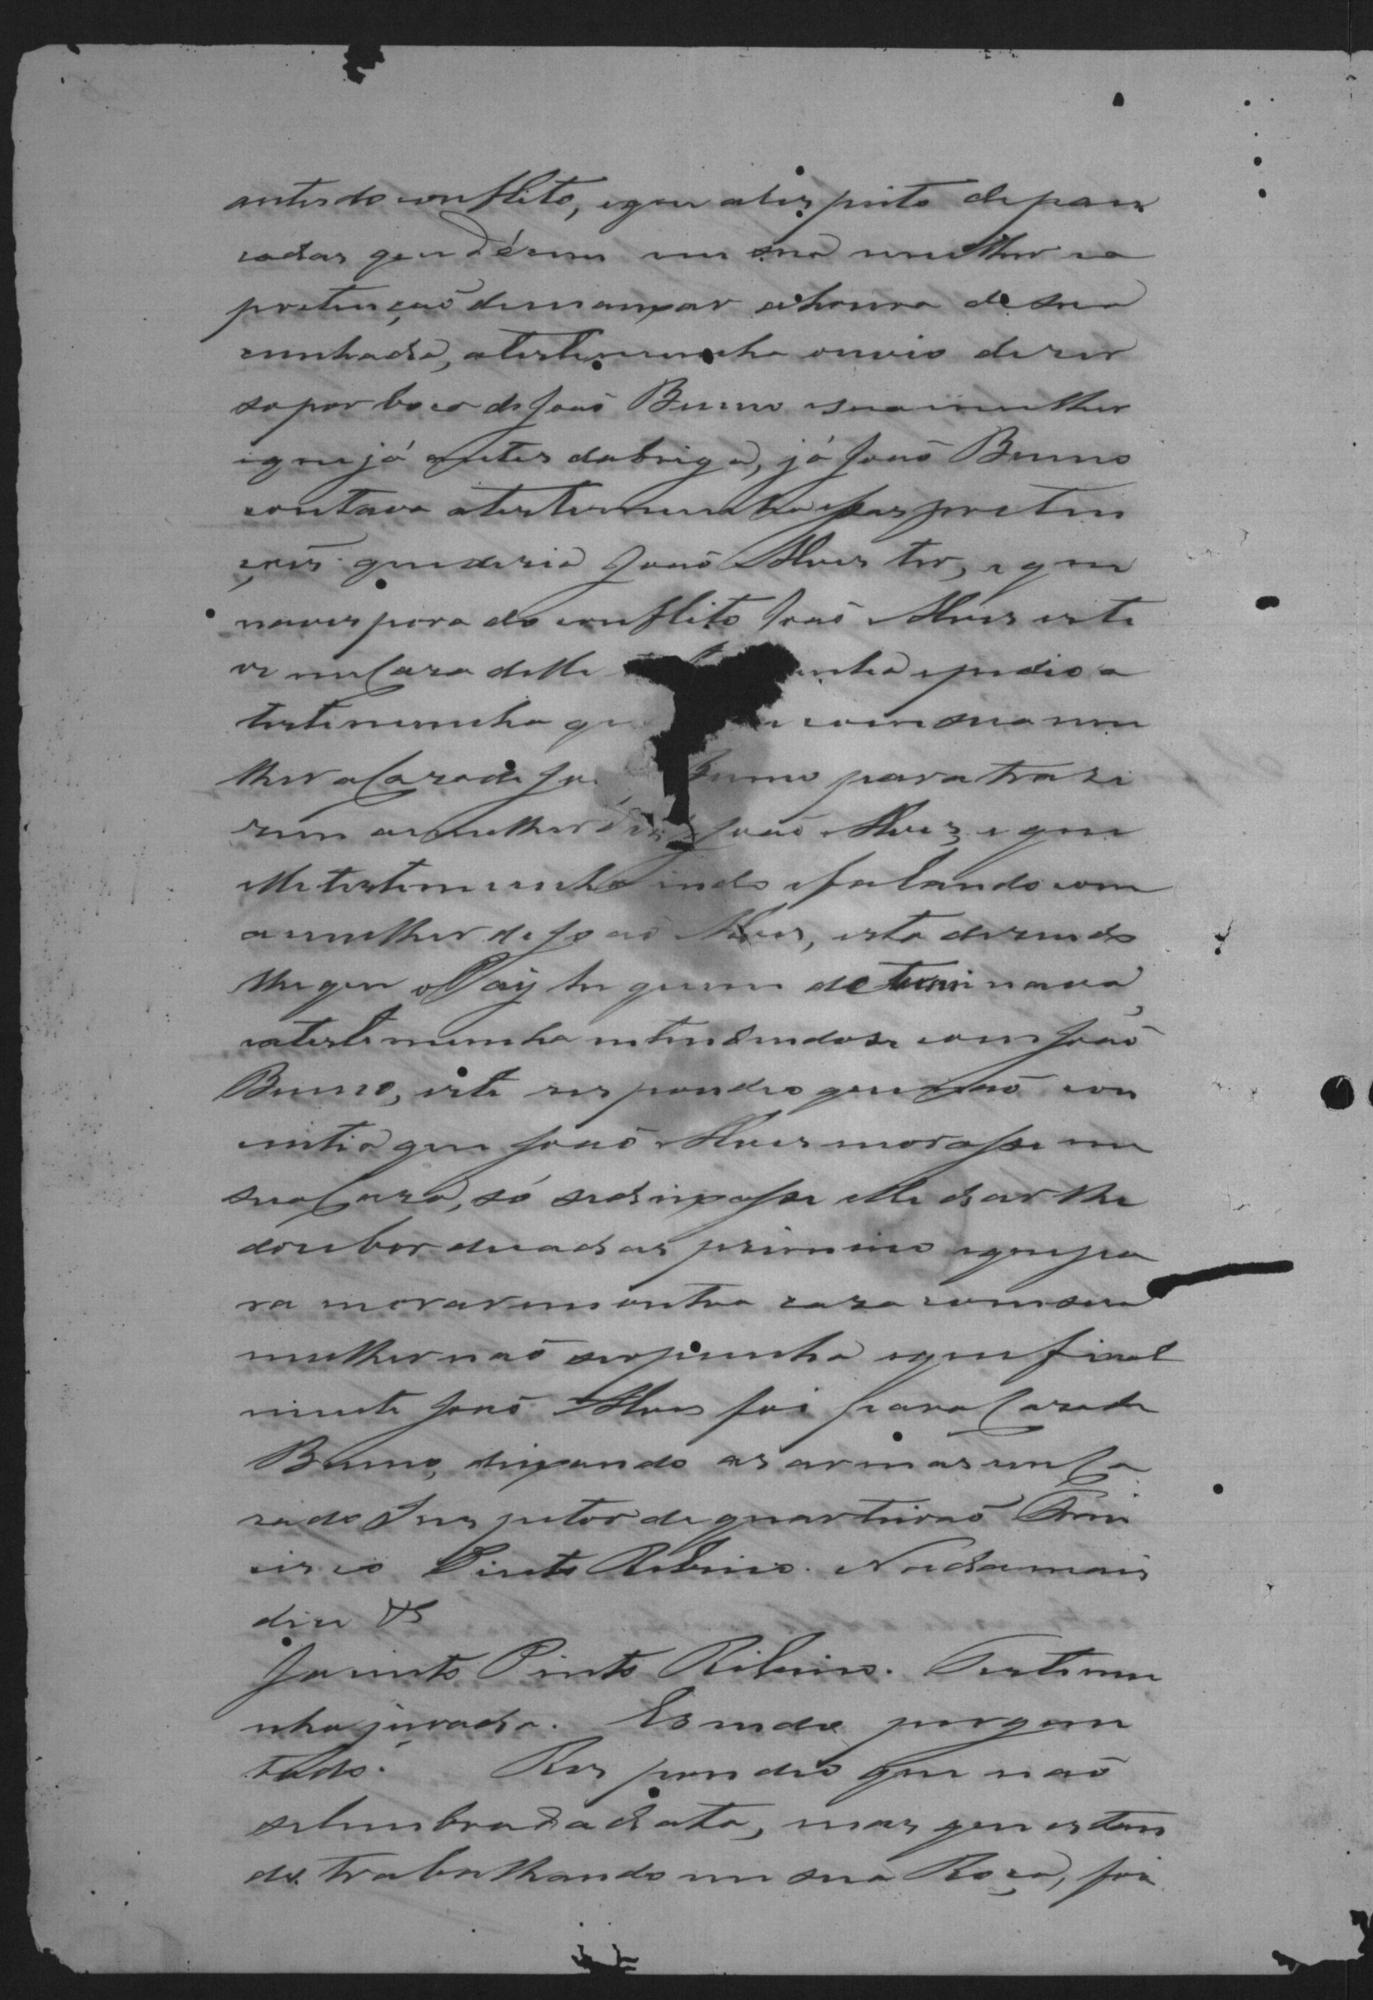 antes do conflito, e que a respeito de pan
cadas que déram em sua mulher e a
pretenção de manxar a honra de sua
cunhada, a testemunha ouvio dizer
so por boca de João Bueno e sua mulher
e que já antes da briga, já João Bueno
contava a testemunha essas preten
ções que dizia João Alves ter, e que
na vespora do conflito João Alves este
ve em Caza delle nha e pedio a
testemunha qu com sua mu
lher a Caza de Jo Bueno para traze
rem a mulher João Alves, e que
elle testemunha indo e falando com
a mulher de João Alves, esta dizendo
lhe que o Pay he quem determinava,
e a testemunha entendendose com João
Bueno, este respondeo que não con
centia que João Alves morasse em
sua Caza, só se deixasse elle dar lhe
doze borduadas primeiro e que pa
ra morar em outra caza com sua
mulher não se opunha e que final
mente João Alves foi para Caza de
Bueno, deixando as armas em Ca
za do Inspetor de quarteirão
Pinto Ribeiro. Nada mais
dice &
Jacinto Pinto Ribeiro. Testemu
nha jurada. Esendo pergun
tado. Respondeo que não
se lembra da data, mas que estan
do trabalhando em sua Roça, foi